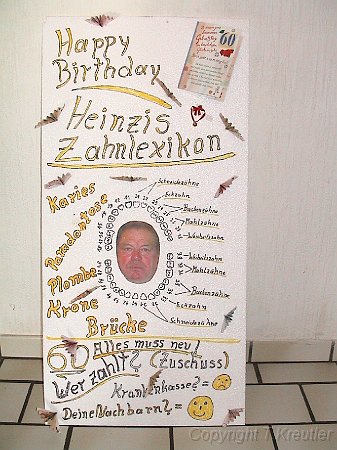 Happy
Birthday
60
Heinzis
Zahnlexikon
Karies
Paradontose
Plombe
Krone
Brücke
Schneidezähne
Eckzahn
Backenzähne
Mahlzähne
Weisheitszahn
Weisheitszahn
Mahlzähne
Backenzähne
Eckzahn
Schneidezähne
60 Alles muss neu!
Wer zahlt? (Zuschuss)
Krankenkasse? =
Deine Nachbarn? =
Copyright T.Kreutler